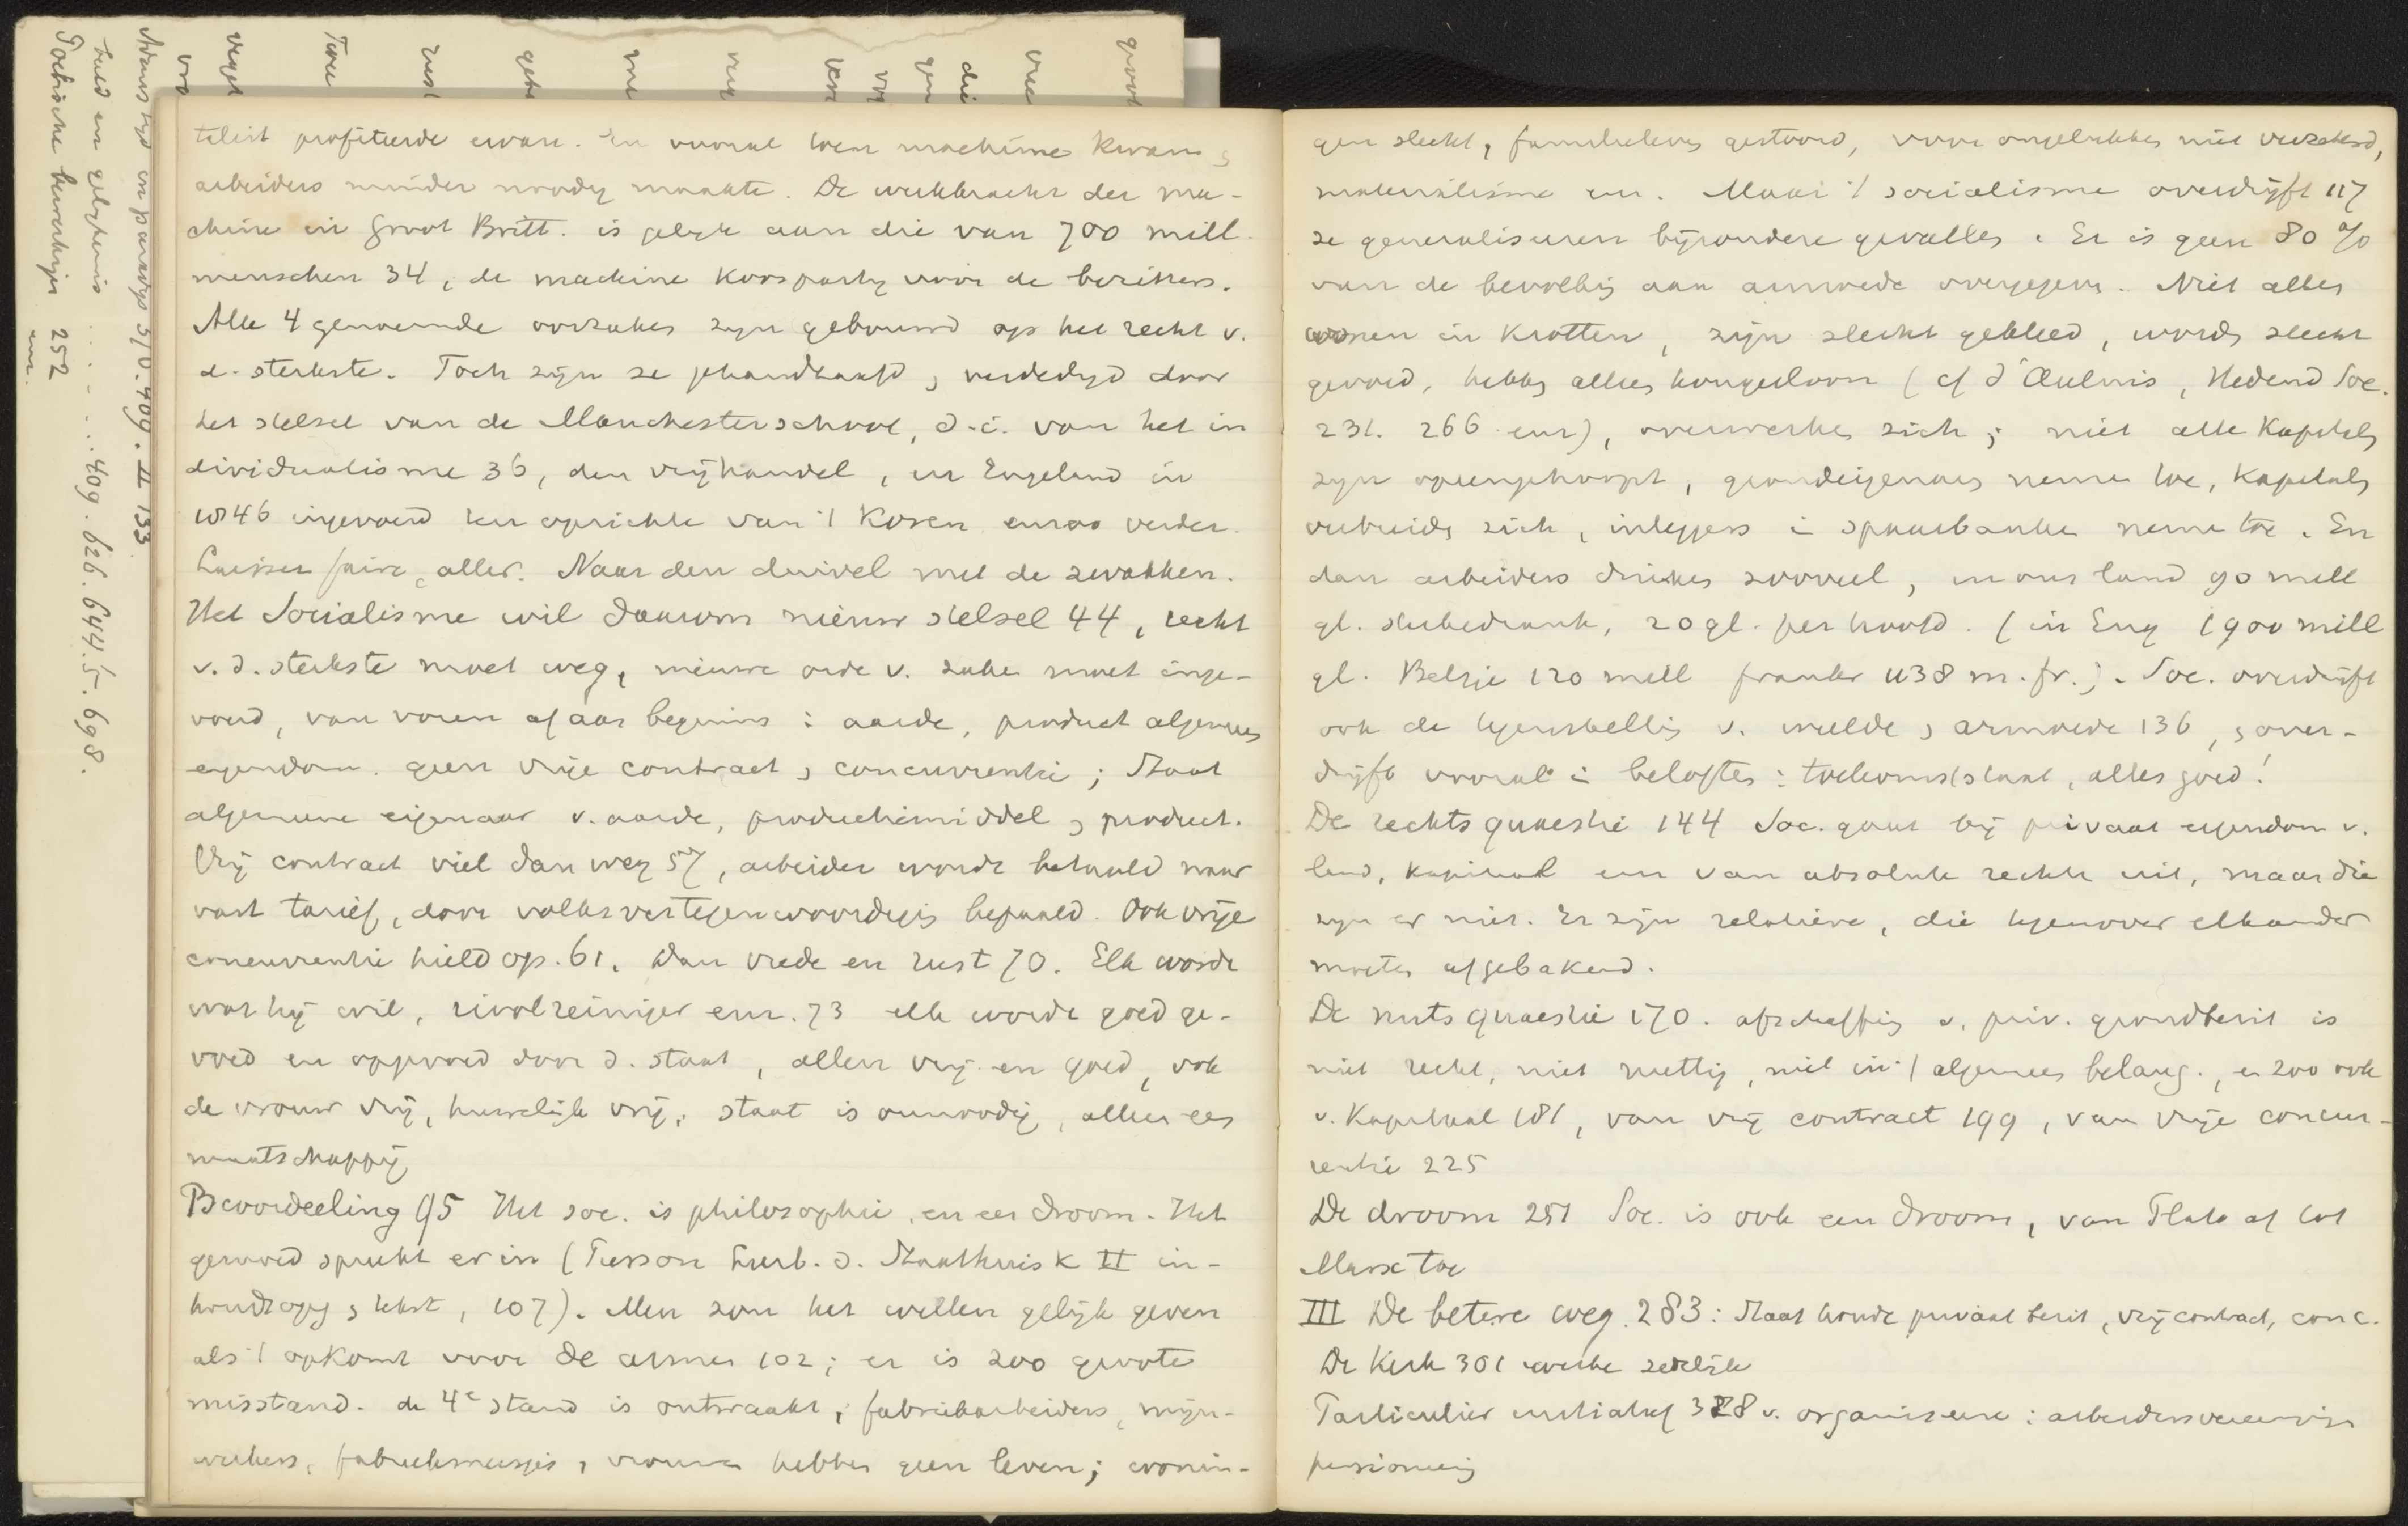 talist profiteerde ervan. En vooral toen machine kwam &
arbeiders minder noodig maakte. De werkkracht der ma-
chine in Groot Britt. is gelijk aan die van 700 mill.
menschen 34, de machine voor de bezitters.
Alle 4 genoemde oorzaken zyn gebouwd op het recht v.
d. sterkste. Toch zijn ze gehandhaafd, verdedigd door
het stelsel van de Manchesterschool, d.i. van het in
dividualisme 36, den vrijhandel, in Engeland in
1846 ingevoerd verder.
Laisser faire, aller. Naar den duivel met de zwakken.
Het Socialisme wil daarom nieuw stelsel 44, recht
v. d. sterkste moet weg, nieuwe orde v. zaken moet inge-
voerd, van voren af aan beginnen: aarde, product algemeen
eigendom. geen vrije contract, concurrentie; Staat
algemeene eigenaar v. aarde, productiemiddel, product.
Vrij contract viel dan weg 57, arbeider worde betaald naar
vast tarief, door volksvertegenwoordigig bepaald. Ook vrije
concurrentie hield op. 61. Dan vrede en rust 70. Elk worde
wat hij wil, rioolreiniger enz. 73 elk worde goed ge-
voed en opgevoed door d. staat, allen vrij en goed, ook
de vrouw vrij, huwelijk vrij, staat is onnoodig, alleen een
maatschappij
Beoordeeling 95 Het soc. is philosophie, en een droom. Het
gemoed spreekt er in (Pierson Leerb. d. Staathuisk II in-
houdsopg, tekst, 107). Men zou het willen gelijk geven
als 't opkomt voor de armen 102; er is zoo groote
misstand. de 4e stand is ontwaakt, fabriekarbeiders, mijn-
werkers, fabrieksmeisjes, vrouwen hebben geen leven; wonin-
gen slecht, familieleven gestoord, voor ongelukken niet verzekerd,
materialisme enz. Maar 't socialisme overdrijft 117
ze generaliseren bijzondere gevallen. Er is geen 80 %
van de bevolkig aan armoede overgegeven. Niet allen
wonen in Krotten, zijn slecht gekleed, worden slecht
gevoed, hebben allen hongerloon (cf d'Aulnis, Hedend Soc.
231. 266 enz), overwerken zich; niet alle Kapitalen
zyn opeengehoopt, grondeigenaars nemen toe, Kapitalen
verbreiden zich, inleggers i spaarbanken nemen toe. En
dan arbeiders drinken zooveel, in ons land 90 mill
gl. sterkedrank, 20 gl. per hoofd. (in Eng 1900 mill
gl. Belgie 120 mill franken 438 m. fr.). Soc. overdrijft
ook de tegenstellig v. weelde, armoede 136, & over-
drijft vooral i beloften: toekomststaat, alles goed!
De rechtsquaestie 144 Soc. gaat bij privaat eigendom v.
land, kapitaal enz van absolute rechten uit, maar die
zyn er niet. Er zijn relatieve, die tegenover elkander
moeten afgebakend.
De nutsquaestie 170. afschaffig v. priv. grondbezit is
niet recht, niet nuttig, niet in 't algemeen belang., en zoo ook
v. Kapitaal 181, van vrij contract 199, van vrije concur-
rentie 225
De droom 251 Soc. is ook een droom, van Plato af tot
Marx toe
III De betere weg. 283: Staat houde privaat bezit, vrij contract, conc.
De Kerk 301 werke zedelijk
Particulier initiatief 328 v. organiseeren: arbeidersvereenigin
pensioneerig
grool
vree
die
gen
vry
verv
very
me
geh
rust
Twee
veget
vro
Adams tyd en paradys 370. 409. II 133
val en gelykenis . . . . . . 409. 626. 644. 5. 698.
252
enz.